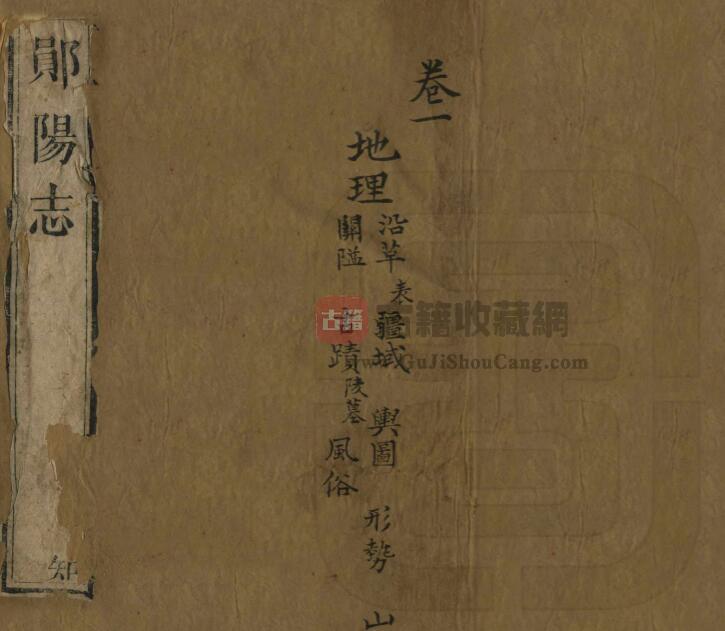 卷一
地理
沿革表 疆域 輿圖 形勢 山
關隘 古蹟陵墓 風俗
鄖陽志
知
古籍
古籍收藏網
www.GuJiShouCang.com